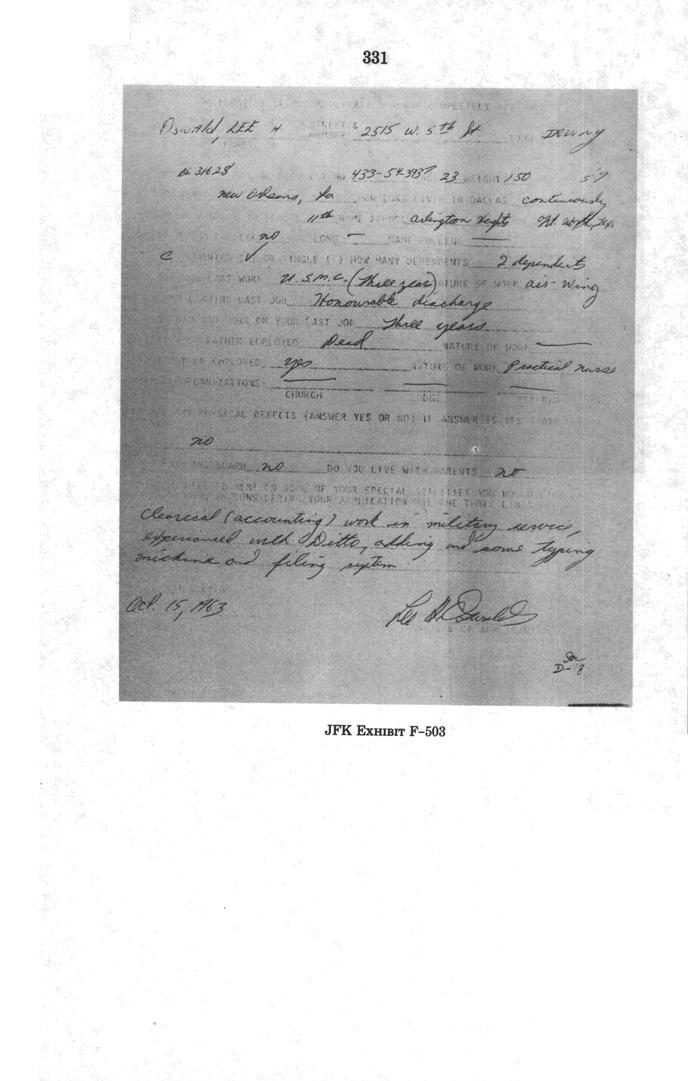 331
COMPLETELY
Oswald, LEE H STREET & NUMBER 2515 W. 5th St IRVING
BL 31628 NO 433-54-3937 23 WEIGHT 150 5'9
New Orleans, La HOW LONG LIVED IN DALLAS continuously
11th NAME SCHOOL Arlington Heights Ft. Worth, Tex.
no LONG — NAME COLLEGE —
C MARRIED (✓) OR SINGLE ( ) HOW MANY DEPENDENTS 2 dependents
LAST WORK U.S.M.C. (three years) NATURE OF WORK air-wing
LEAVING LAST JOB Honourable discharge
YOU WORK ON YOUR LAST JOB Three years
FATHER EMPLOYED Dead NATURE OF WORK —
EMPLOYED yes NATURE OF WORK Practical nurse
ORGANIZATIONS — — —
CHURCH LODGE
ANY PHYSICAL DEFECTS (ANSWER YES OR NO) IF ANSWER IS YES STATE
no
BOARD no DO YOU LIVE WITH PARENTS no
LIKE TO SOME OF YOUR SPECIAL YOU
IN CONSIDERING YOUR APPLICATION USE THE THREE LINES
Clearical (accounting) work in military service,
experienced with Ditto, adding and some typing
michine and filing system
Oct. 15, 1963 Lee H. Oswald
OF
JFK EXHIBIT F-503